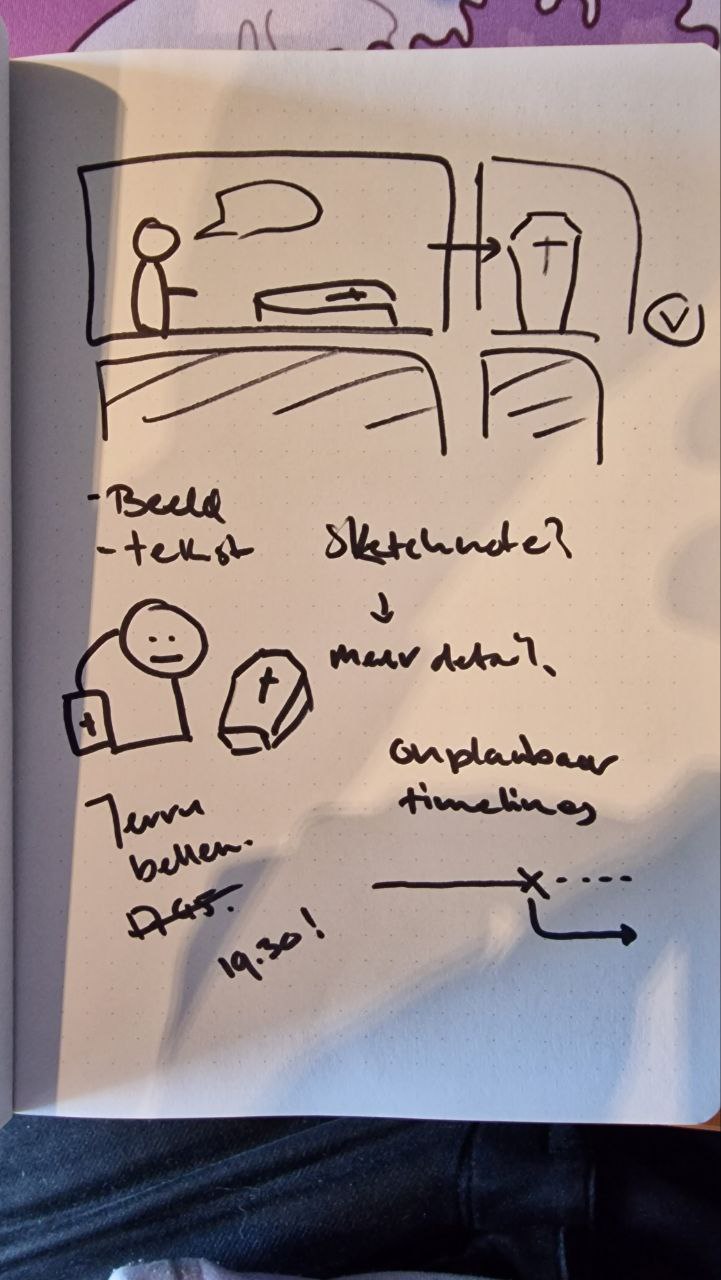 - Beeld
- tekst
Sketchnote?
meer detail.
onplanbaar
timelines
bellen.
19.30!